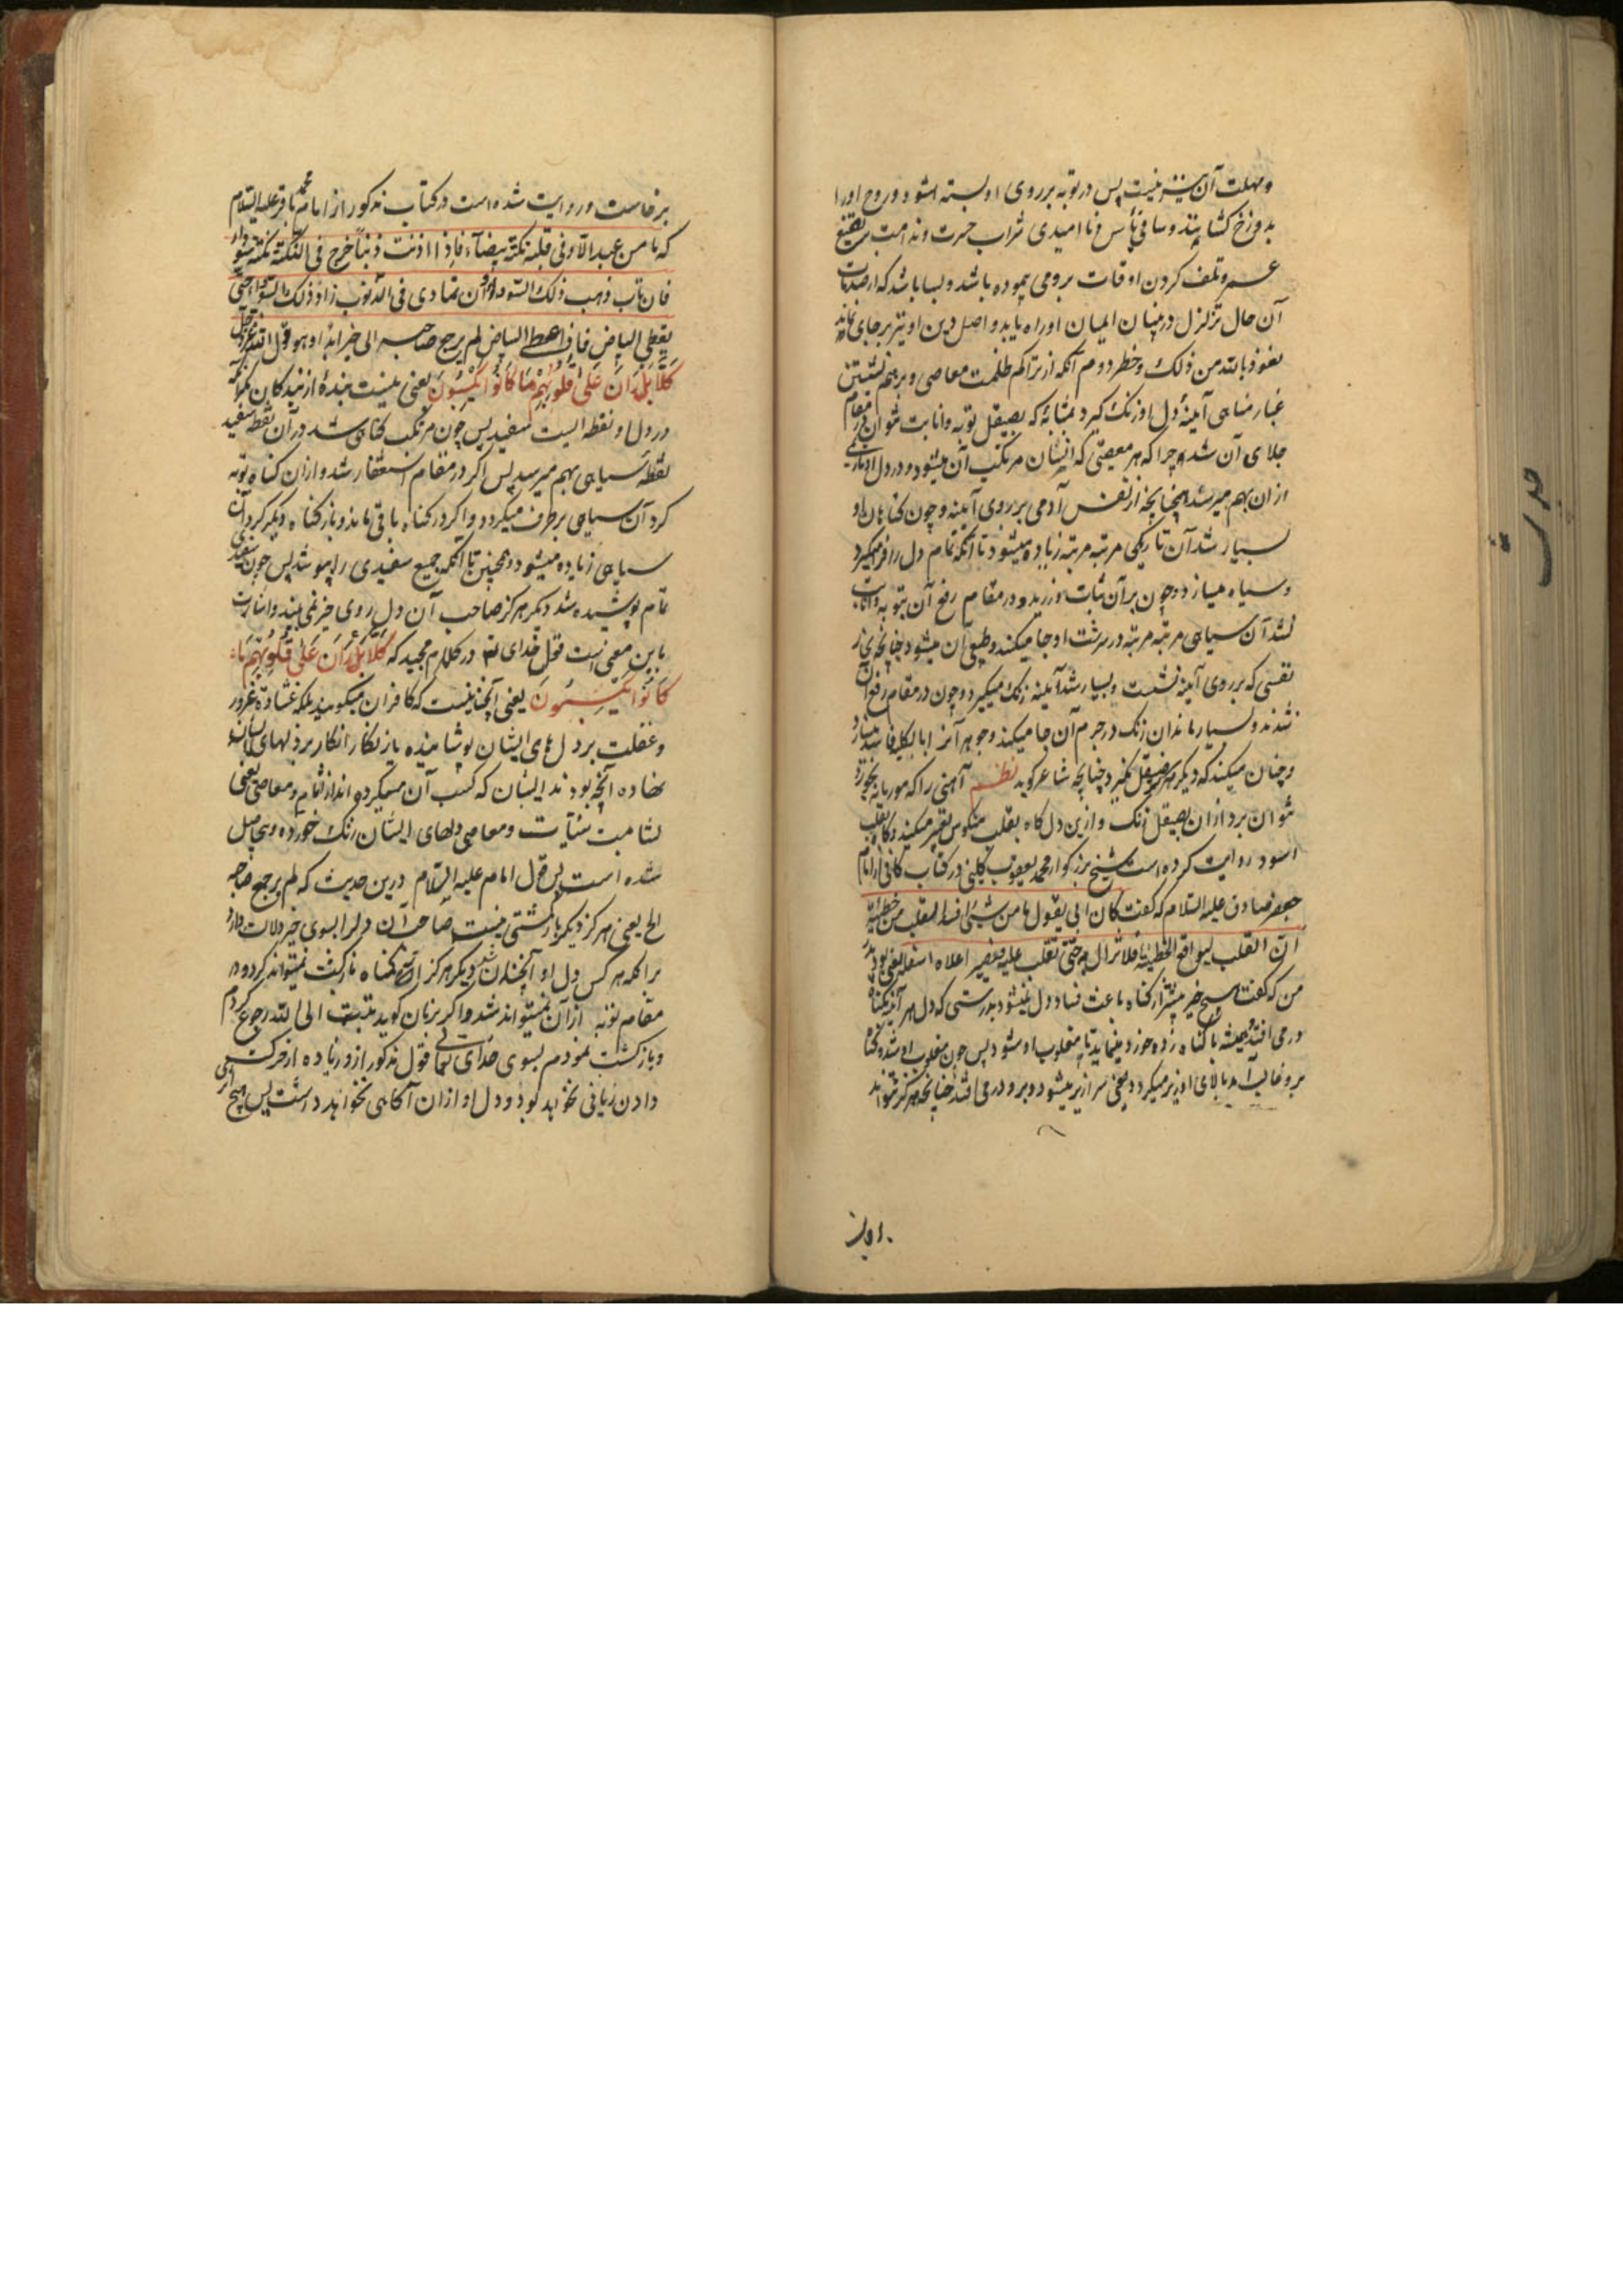 و مهلت آن نیز نیست پس در توبه بر روی او بسته شود و روح او را
بدوزخ کشانند و ساقی یأس و ناامیدی شراب حسرت و ندامت بر تضییع
عمر و تلف کردن اوقات برو می پیموده باشد و بسا باشد که از صدمات
آن حال تزلزل در بنیان ایمان او راه یابد و اصل دین او نیز بر جای نماند
نعوذ بالله من ذلک و خطر دوم آنکه از تراکم ظلمت معاصی و بر هم نشستن
غبار مناهی آینهٔ دل او زنک کیرد بمثابهٔ که بصیقل توبه و انابت نتوان در مقام
جلای آن شد چرا که هر معصیتی که انسان مرتکب آن میشود در دل او تاریکی
از آن بهم میرسد چنانچه از نفس آدمی بر روی آینه و چون کناهان او
بسیار شد آن تاریکی مرتبه مرتبه زیاده میشود تا آنکه تمام دل را فرو میکیرد
و سیاه میسازد و چون بر آن ثبات ورزید و در مقام رفع آن بتوبه و انابت
نشد آن سیاهی مرتبه مرتبه در سرشت او جا میکند و طبیعی آن میشود چنانچه بخار
نفسی که بر روی آینه نشست و بسیار شد آینه زنک میکیرد و چون در مقام رفع آن
نشدند و بسیار ماند آن زنک در جرم آن جا میکند و جوهر آنرا بالکلیه فاسد میسازد
و چنان میکند که دیکر هرکز صیقل نکیرد چنانچه شاعر کوید نظم آهنی را که موریانه بخورد
نتوان برد ازان بصیقل زنک و ازین دل کاه بقلب منکوس تعبیر میکنند و کاه بقلب
اسود روایت کرده است شیخ بزرکوار محمد یعقوب کلینی در کتاب کافی از امام
جعفر صادق علیه السلام که کفت کان ابی یقول ما من شیئ افسد للقلب من خطیئة
ان القلب لیواقع الخطیئة فلا تزال به حتی تغلب علیه فیصیر اعلاه اسفله یعنی بود پدر
من که کفت هیچ چیز بیشتر از کناه باعث فساد دل نمیشود بدرستی که دل هر آینه بکناه
در می افتد و همیشه با کناه زد و خورد مینماید تا مغلوب او شود پس چون مغلوب او شد و کناه
برو غالب آمد بالای او بزیر میکردد یعنی سرازیر میشود و برو در می افتد چنانچه هرکز نتواند
بر خاست و روایت شده است در کتاب مذکور از امام محمد باقر علیه السلام
که ما من عبد الا و فی قلبه نکتة بیضآء فاذا اذنب ذنباً خرج فی النکتة نکتة سودآء
فان تاب ذهب ذلک السواد و ان تمادی فی الذنوب زاد ذلک السواد حتی
یغطی البیاض فاذا غطی البیاض لم یرجع صاحبه الی خیر ابداً و هو قول الله عز و جل
کَلَّا بَلْ رَانَ عَلَی قُلُوبِهِمْ مَا کَانُوا یَکْسِبُونَ یعنی نیست بندهٔ از بندکان مکر آنکه
در دل او نقطه ایست سفید پس چون مرتکب کناهی شد در آن نقطه سفید
نقطهٔ سیاهی بهم میرسد پس اکر در مقام استغفار شد و از ان کناه توبه
کرد آن سیاهی بر طرف میکردد و اکر در کناه باقی ماند و باز کناه دیکر کرد آن
سیاهی زیاده میشود و همچنین تا آنکه جمیع سفیدی را بپوشد پس چون سفیدی
تمام پوشیده شد دیکر هرکز صاحب آن دل روی خیر نمی بیند و اشارت
باین معنی است قول خدای تعالی در کلام مجید که کَلَّا بَلْ رَانَ عَلَی قُلُوبِهِمْ مَا
کَانُوا یَکْسِبُونَ یعنی آنچنان نیست که کافران میکویند بلکه غشاوهٔ غرور
و غفلت بر دل های ایشان پوشانیده یا زنکار انکار بر دلهای ایشان
نهاده آنچه بودند ایشان که کسب آن میکرده اند از آثام و معاصی یعنی
بشامت سیئات و معاصی دلهای ایشان زنک خورده و بیحاصل
شده است پس قول امام علیه السلام درین حدیث که لم یرجع صاحبه
الخ یعنی هرکز دیکر بازکشتی نیست صاحب آن دل را بسوی خیر دلالت دارد
بر آنکه هر کس دل او آنچنان شد دیکر هرکز از کناه بازکشت نمیتواند کرد و در
مقام توبه از آن نمیتواند شد و اکر بزبان کوید تبت الی الله رجوع کردم
و بازکشت نمودم بسوی خدای تعالی قول مذکور از و زیاده از حرکت
دادن زبانی نخواهد بود و دل او ازان آکاهی نخواهد داشت پس هیچ اثری